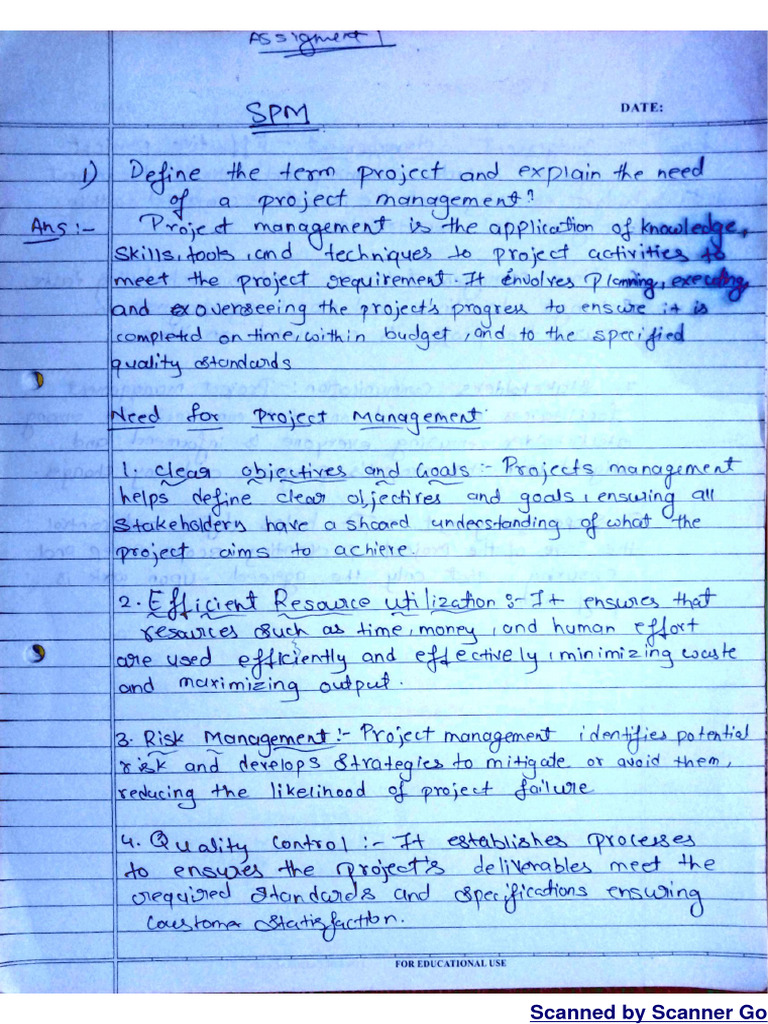 Assigment 1
SPM
DATE:
1) Define the term project and explain the need
of a project management?
Ans :- Project management is the application of knowledge,
skills, tools, and techniques to project activities to
meet the project requirement. It envolves planning, executing,
and ex overseeing the project's progress to ensure it is
completd on time, within budget, and to the specified
quality standards
Need for Project Management:
1. Clear objectives and Goals :- Projects management
helps define clear objectives and goals, ensuring all
stakeholders have a shared understanding of what the
project aims to achieve.
2. Efficient Resource utilization :- It ensures that
resources such as time, money, and human effort
are used efficiently and effectively, minimizing waste
and maximizing output.
3. Risk Management :- Project management identifies potential
risk and develops strategies to mitigate or avoid them,
reducing the likelihood of project failure
4. Quality control :- It establishes processes
to ensures the project's deliverables meet the
required standards and specifications ensuring
FOR EDUCATIONAL USE
Scanned by Scanner Go